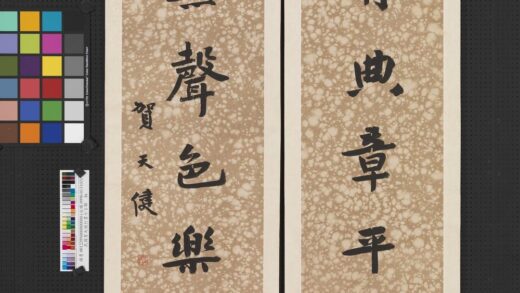 典章平
無聲色樂
賀天健